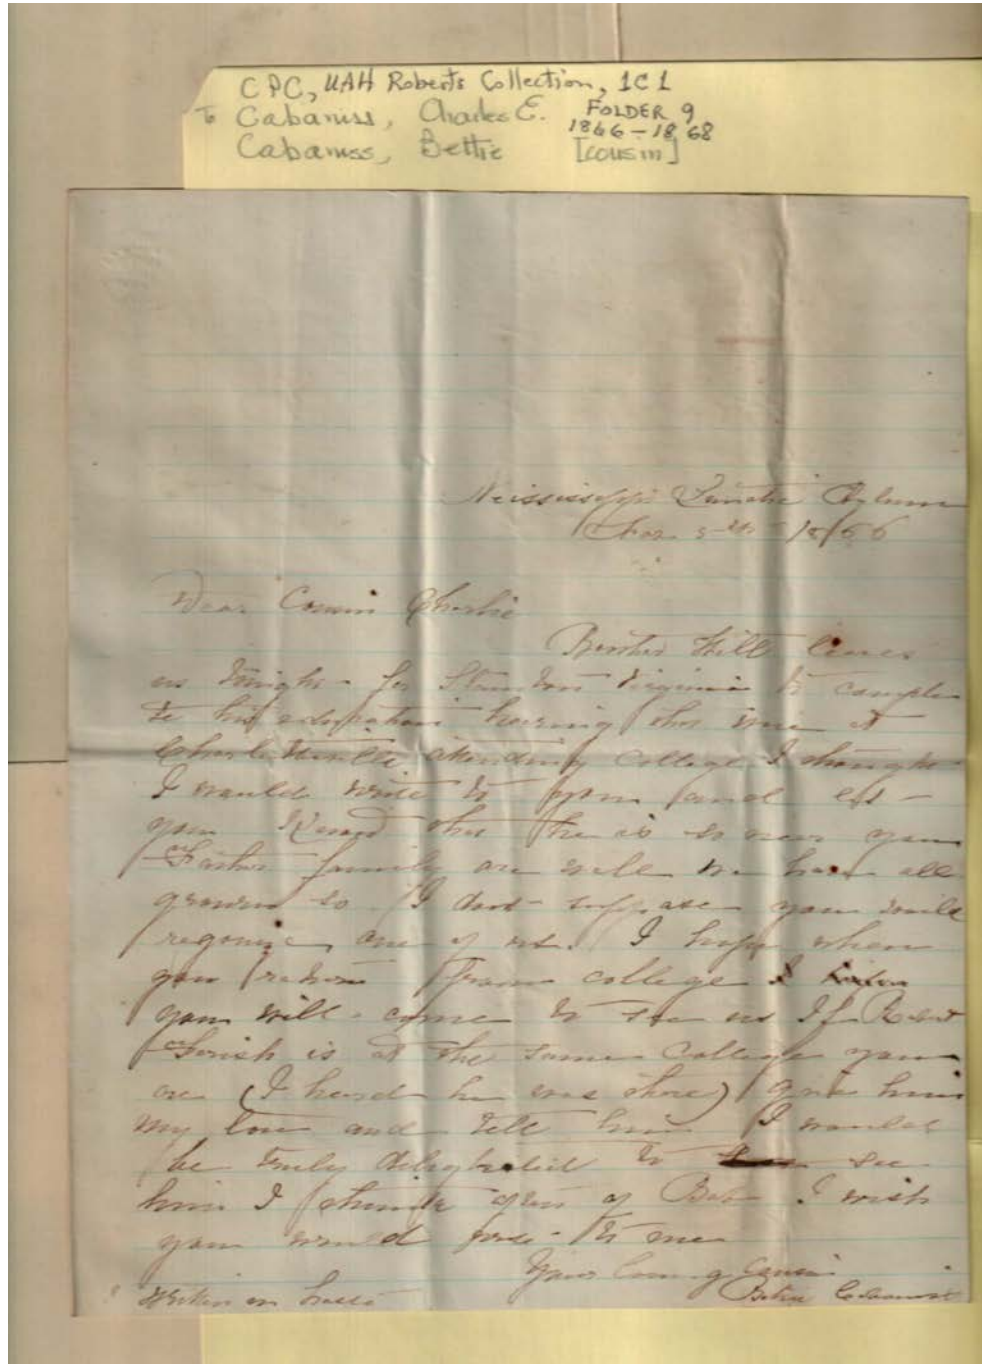 CPC, UAH Roberts Collection, 1C1
To Cabaniss, Charles E. FOLDER 9
1866-1868
Cabaniss, Bettie [cousin]
Mississippi Lunatic Asylum
5th 1866
Dear Cousin Charlie
Brother Will leaves
us tonight for Staunton Virginia to comple
te his education hearing that you were at
Charlottesville attending college I thought
I would write to you and let
you know that he is so near you
Father family are well we have all
grown so I dont suppose you will
regonize one of us. I hope when
you return from college I
you will come to see us If Robert
is at the same College you
are (I heard he was there) give him
my love and tell him I would
be truly delighted to see
him I think often of Bob I wish
you would to me
Your loving Cousin
written in haste Bettie Cabaniss